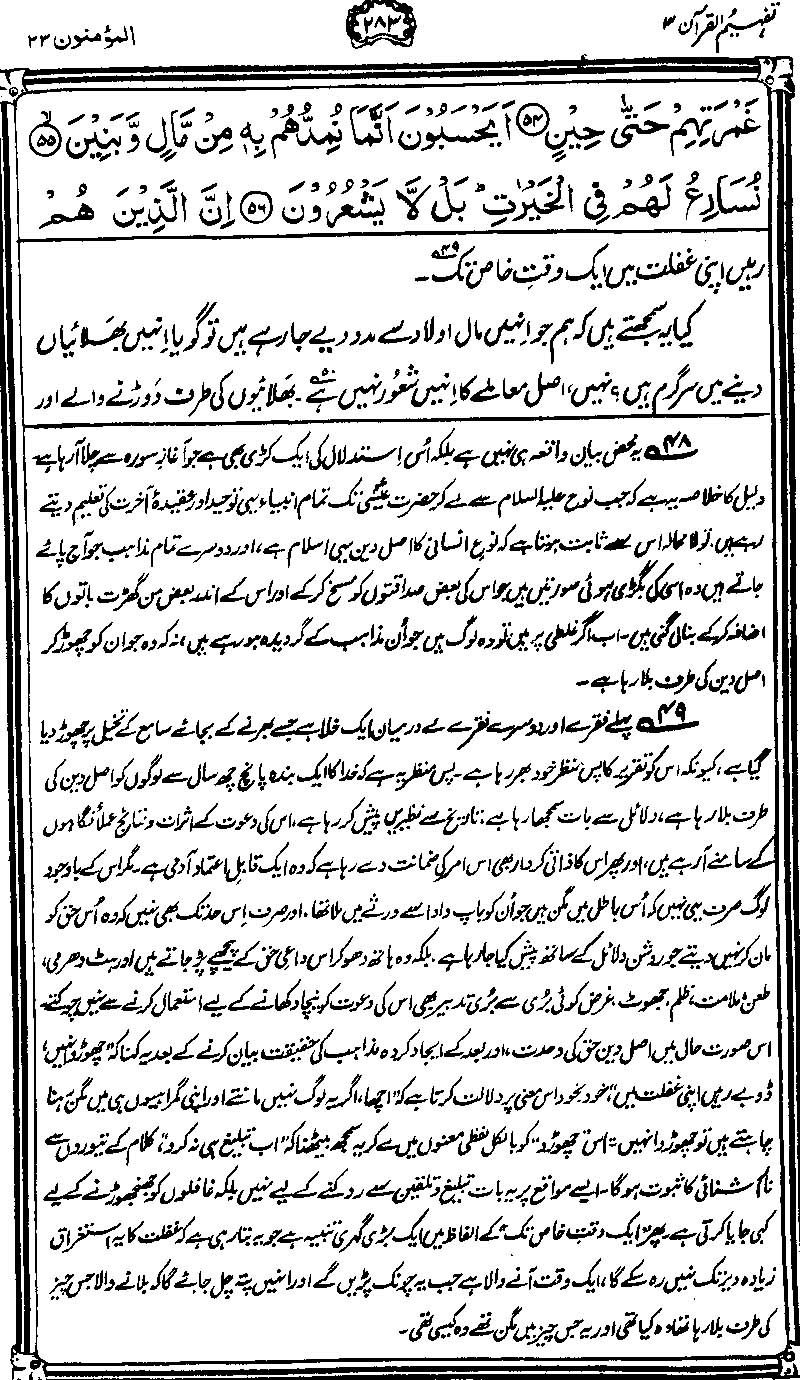 تفہیم القرآن ۳
۲۸۳
المؤمنون ۲۳
غَمْرَتِهِمْ حَتّٰى حِيْنٍ ﴿۵۴﴾ اَيَحْسَبُوْنَ اَنَّمَا نُمِدُّهُمْ بِهٖ مِنْ مَّالٍ وَّ بَنِيْنَ ﴿۵۵﴾
نُسَارِعُ لَهُمْ فِي الْخَيْرٰتِ ؕ بَلْ لَّا يَشْعُرُوْنَ ﴿۵۶﴾ اِنَّ الَّذِيْنَ هُمْ
رہیں اپنی غفلت میں ایک وقتِ خاص تک۔ ۴۹
کیا یہ سمجھتے ہیں کہ ہم جو اِنہیں مال اولاد سے مدد دیے جا رہے ہیں تو گویا اِنہیں بھلائیاں
دینے میں سرگرم ہیں؟ نہیں، اصل معاملے کا اِنہیں شعور نہیں ہے ۵۰۔ بھلائیوں کی طرف دَوڑنے والے اور
۴۸ یہ محض بیان واقعہ ہی نہیں ہے بلکہ اُس اِستدلال کی ایک کڑی بھی ہے جو آغازِ سورہ سے چلا آ رہا ہے
دلیل کا خلاصہ یہ ہے کہ جب نوح علیہ السلام سے لے کر حضرت عیسٰیؑ تک تمام انبیاء یہی توحید اور عقیدۂ آخرت کی تعلیم دیتے
رہے ہیں، تو لا محالہ اس سے ثابت ہوتا ہے کہ نوع انسانی کا اصل دین یہی اسلام ہے، اور دوسرے تمام مذاہب جو آج پائے
جاتے ہیں وہ اسی کی بگڑی ہوئی صورتیں ہیں جو اس کی بعض صداقتوں کو مسخ کر کے اور اس کے اندر بعض من گھڑت باتوں کا
اضافہ کر کے بنا لی گئی ہیں۔ اب اگر غلطی پر ہیں تو وہ لوگ ہیں جو اُن مذاہب کے گرویدہ ہو رہے ہیں، نہ کہ وہ جو ان کو چھوڑ کر
اصل دین کی طرف بلا رہا ہے۔
۴۹ پہلے فقرے اور دوسرے فقرے کے درمیان ایک خلا ہے جسے بھرنے کے بجائے سامع کے تخیل پر چھوڑ دیا
گیا ہے، کیونکہ اس کو تقریر کا پس منظر خود بھر رہا ہے۔ پس منظر یہ ہے کہ خدا کا ایک بندہ پانچ چھ سال سے لوگوں کو اصل دین کی
طرف بلا رہا ہے، دلائل سے بات سمجھا رہا ہے، تاریخ سے نظیریں پیش کر رہا ہے، اس کی دعوت کے اثرات و نتائج عملاً نگاہوں
کے سامنے آ رہے ہیں، اور پھر اس کا ذاتی کردار بھی اس امر کی ضمانت دے رہا ہے کہ وہ ایک قابلِ اعتماد آدمی ہے۔ مگر اس کے باوجود
لوگ صرف یہی نہیں کہ اُس باطل میں مگن ہیں جو اُن کو باپ دادا سے ورثے میں ملا تھا، اور صرف اِس حد تک بھی نہیں کہ وہ اُس حق کو
مان کر نہیں دیتے جو روشن دلائل کے ساتھ پیش کیا جا رہا ہے، بلکہ وہ ہاتھ دھو کر اس داعیِ حق کے پیچھے پڑ جاتے ہیں اور ہٹ دھرمی،
طعن، ملامت، ظلم، جھوٹ، غرض کوئی بُری سے بُری تدبیر بھی اس کی دعوت کو نیچا دکھانے کے لیے استعمال کرنے سے نہیں چوکتے۔
اس صورت حال میں اصل دین حق کی وحدت، اور بعد کے ایجاد کردہ مذاہب کی حقیقت بیان کرنے کے بعد یہ کہنا کہ "چھوڑو انہیں،
ڈوبے رہیں اپنی غفلت میں"، خود بخود اس معنی پر دلالت کرتا ہے کہ "اچھا، اگر یہ لوگ نہیں مانتے اور اپنی گمراہیوں ہی میں مگن رہنا
چاہتے ہیں تو چھوڑو انہیں"۔ اس "چھوڑو" کو بالکل لفظی معنوں میں لے کر یہ سمجھ بیٹھنا کہ "اب تبلیغ ہی نہ کرو"، کلام کے تیوروں سے
ناآشنائی کا ثبوت ہو گا۔ ایسے مواقع پر یہ بات تبلیغ و تلقین سے روکنے کے لیے نہیں بلکہ غافلوں کو جھنجھوڑنے کے لیے
کہی جایا کرتی ہے۔ پھر "ایک وقتِ خاص تک" کے الفاظ میں ایک بڑی گہری تنبیہ ہے جو یہ بتا رہی ہے کہ غفلت کا یہ استغراق
زیادہ دیر تک نہیں رہ سکے گا، ایک وقت آنے والا ہے جب یہ چونک پڑیں گے اور انہیں پتہ چل جائے گا کہ بلانے والا جس چیز
کی طرف بلا رہا تھا وہ کیا تھی اور یہ جس چیز میں مگن تھے وہ کیسی تھی۔